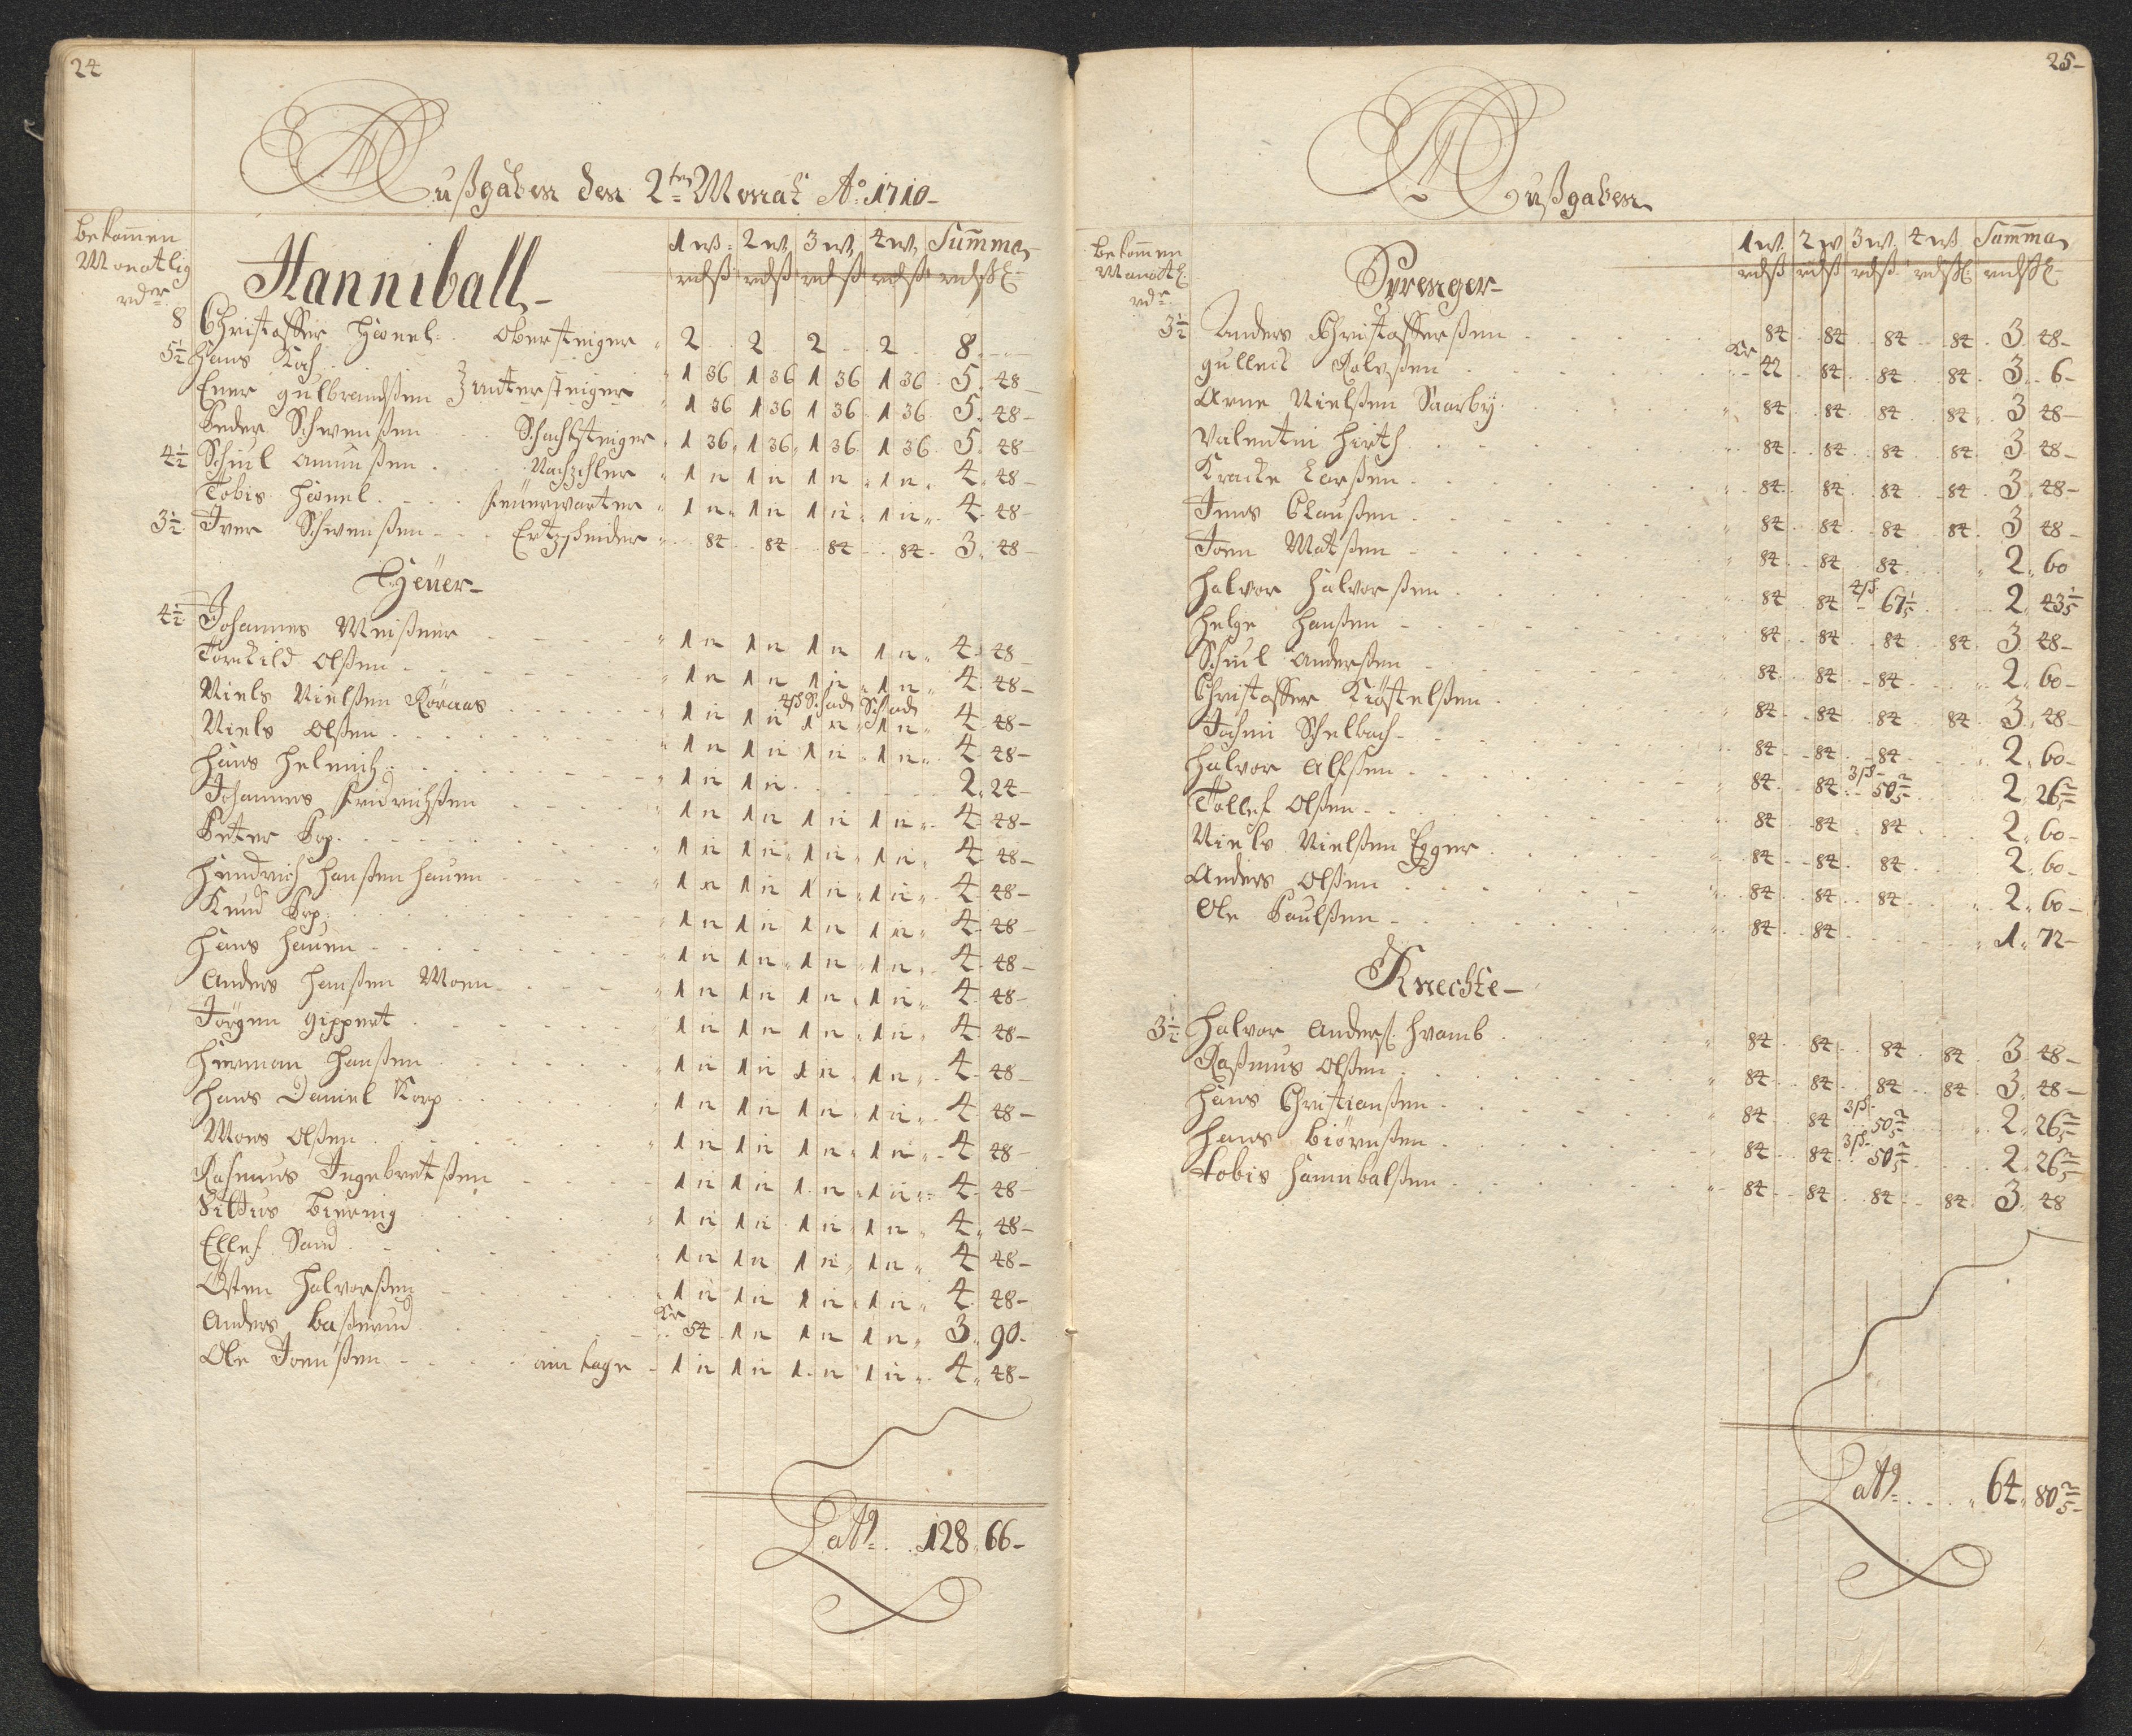 24
Außgaben den 2ten Monat Ao: 1710-
Bekom̄en Monatlig rdr.
1 w: 2 w, 3 w, 4 w, Sum̄ma,
Hanniball,-
rdß rdß rdß rdß rdß
8 Christoffer Obersteiger 2 2 2 2 8
5½ Hans Koch 1 36 1 36 1 36 1 36 5 48
Ener Gulbrandßen } untersteiger 1 36 1 36 1 36 1 36 5 48
Peder Schwenßen Schachtsteiger 1 36 1 36 1 36 1 36 5 48
4½ Schiul Amunßen Nachzehler 1 12 1 12 1 12 1 12 4 48
Tobis Feuerwarter 1 12 1 12 1 12 1 12 4 48
3½ Iver Schwenßen Ertzscheider 84 84 84 84 3 48
Heüer-
4½ Johannes Meißner 1 12 1 12 1 12 1 12 4 48
Torkild Olßen 1 12 1 12 1 12 1 12 4 48
4ß Schad Schad
Niels Nielßen Röraas 1 12 1 12 1 12 1 12 4 48
Niels Olßen 1 12 1 12 1 12 1 12 4 48
Hans Helmich 1 12 1 12 2 24
Johannes Fridrichßen 1 12 1 12 1 12 1 12 4 48
Peter Pop 1 12 1 12 1 12 1 12 4 48
Hendrich Hanßen Hauen 1 12 1 12 1 12 1 12 4 48
Knud Pop 1 12 1 12 1 12 1 12 4 48
Hans Hauen 1 12 1 12 1 12 1 12 4 48
Anders Hanßen Moen 1 12 1 12 1 12 1 12 4 48
Jörgen Gippert 1 12 1 12 1 12 1 12 4 48
Herman Hanßen 1 12 1 12 1 12 1 12 4 48
Hans Daniel Korp 1 12 1 12 1 12 1 12 4 48
Mons Olßen 1 12 1 12 1 12 1 12 4 48
Rasmus Ingebretßen 1 12 1 12 1 12 1 12 4 48
Biering 1 12 1 12 1 12 1 12 4 48
Ellef Sand 1 12 1 12 1 12 1 12 4 48
Östen Halvorßen 1 12 1 12 1 12 1 12 4 48
Anders Baßerud Kr 54 1 12 1 12 1 12 3 90
Ole Joenßen am tage 1 12 1 12 1 12 1 12 4 48
Latt. 128 66-
25-
Außgaben
Bekom̄en Monatl. rdr.
1 w. 2 w 3 w. 4 w Sum̄ma,
Sprenger-
rdß rdß rdß rdß rdß
3½ Anders Christofferßen 84 84 84 84 3 48-
Gulleick Kr 42 84 84 84 3 6-
Arne Nielßen Saarby 84 84 84 84 3 48
Valentin Hirth 84 84 84 84 3 48-
Larßen 84 84 84 84 3 48-
Jens Claußen 84 84 84 84 3 48-
Joen Matßen 84 84 84 2 60
Halvor Halvorßen 84 84 4ß 67⅕ 2 43⅕
Helge Hanßen 84 84 84 84 3 48-
Schiul Anderßen 84 84 84 2 60-
Christoffer Kiöstelßen 84 84 84 84 3 48-
Jochim Schelbach 84 84 84 2 60-
Halvor Alfßen 84 84 3ß 50⅖ 2 26⅖
Tollef Olßen 84 84 84 2 60-
Niels Nielßen Egger 84 84 84 2 60-
Anders Olßen 84 84 84 2 60-
Ole Paulßen 84 84 1 72-
Knechte-
3½ Halvor Anderß. Hvamb 84 84 84 84 3 48-
Raßmus Olßen 84 84 84 84 3 48-
Hans Christianßen 84 84 3ß 50⅖ 2 26⅖
Hans Biörnßen 84 84 3ß 50⅖ 2 26⅖
Tobis Hannibalßen 84 84 84 84 3 48
Latt. 64 80⅖